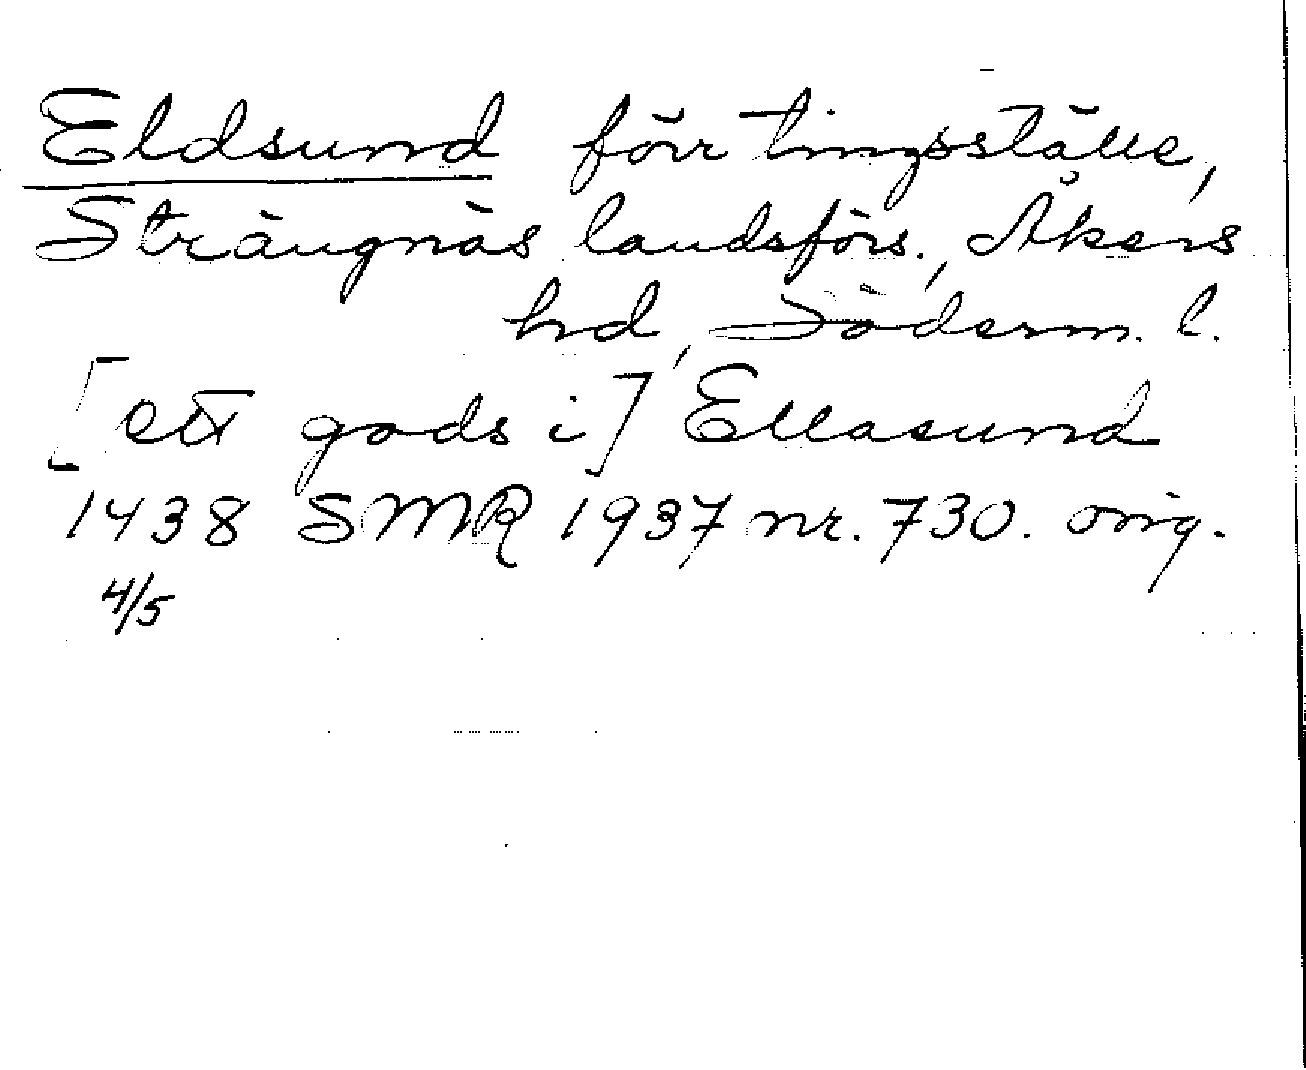 Eldsund förr tingsställe,
Strängnäs landsförs., Åkers
hd, Söderm. l.
[ett gods i] Ellasund
1438 SMR 1937 nr. 730. orig.
4/5